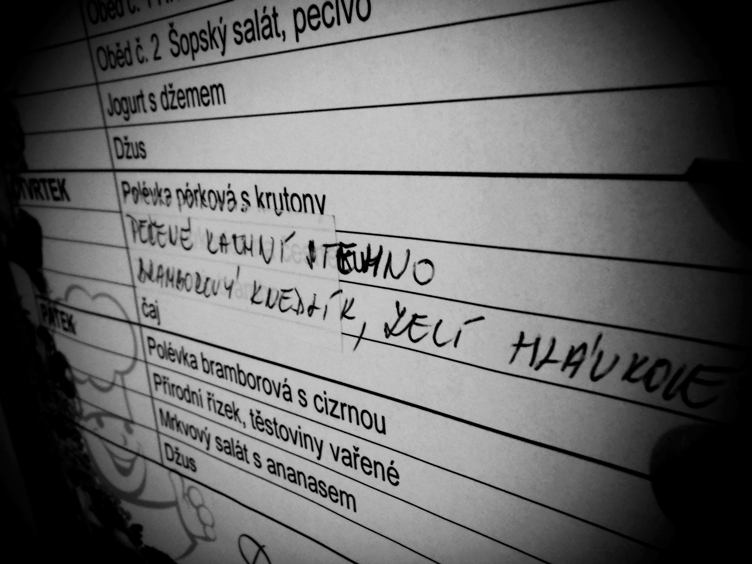 Oběd č. 1
Oběd č. 2 Šopský salát, pečivo
Jogurt s džemem
Džus
Polévka pórková s krutony
PEČENÉ KACHNÍ STEHNO
BRAMBOROVÝ KNEDLÍK, ZELÍ HLÁVKOVÉ
čaj
PÁTEK
Polévka bramborová s cizrnou
Přírodní řízek, těstoviny vařené
Mrkvový salát s ananasem
Džus